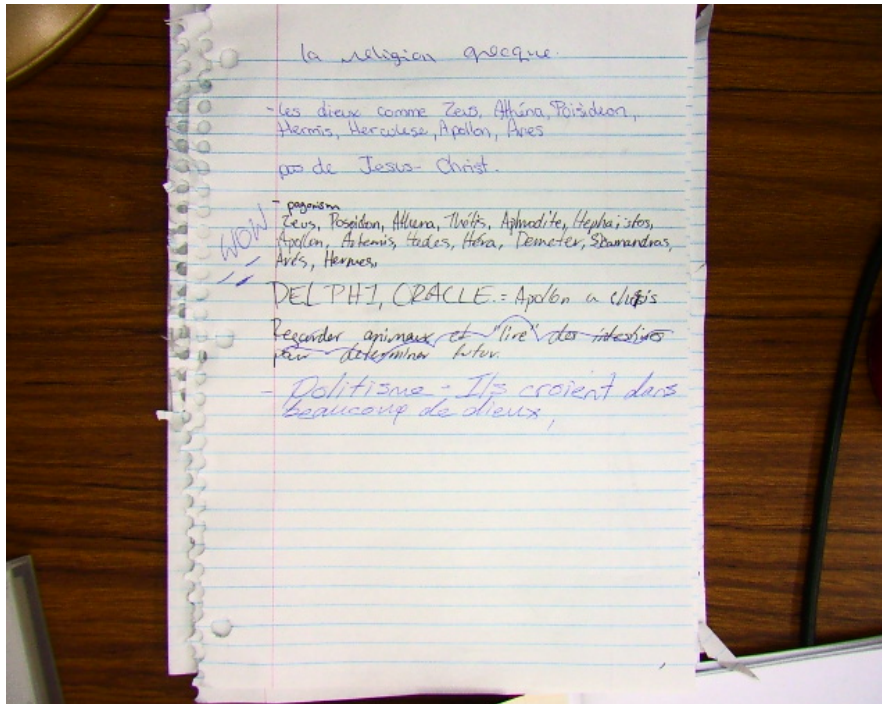 la religion grecque.
- les dieux comme Zeus, Athéna, Poisideon,
Hermis, Herculese, Apollon, Ares
pas de Jesus-Christ.
- paganism
WOW
Zeus, Poseidon, Athena, Thétis, Aphrodite, Hephaistos,
Apollon, Artemis, Hades, Héra, Demeter, Skamandras,
Arés, Hermes,
DELPHI, ORACLE. = Apollon a
Regarder animaux et "lire" des intestines
pour determiner futur.
- Politisme - Ils croient dans
beaucoup de dieux,